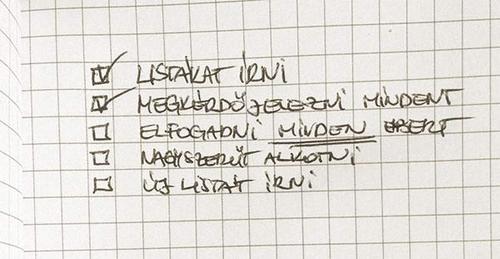 LISTÁKAT ÍRNI
MEGKÉRDŐJELEZNI MINDENT
ELFOGADNI MINDEN
NAGYSZERŰT ALKOTNI
ÚJ LISTÁT ÍRNI